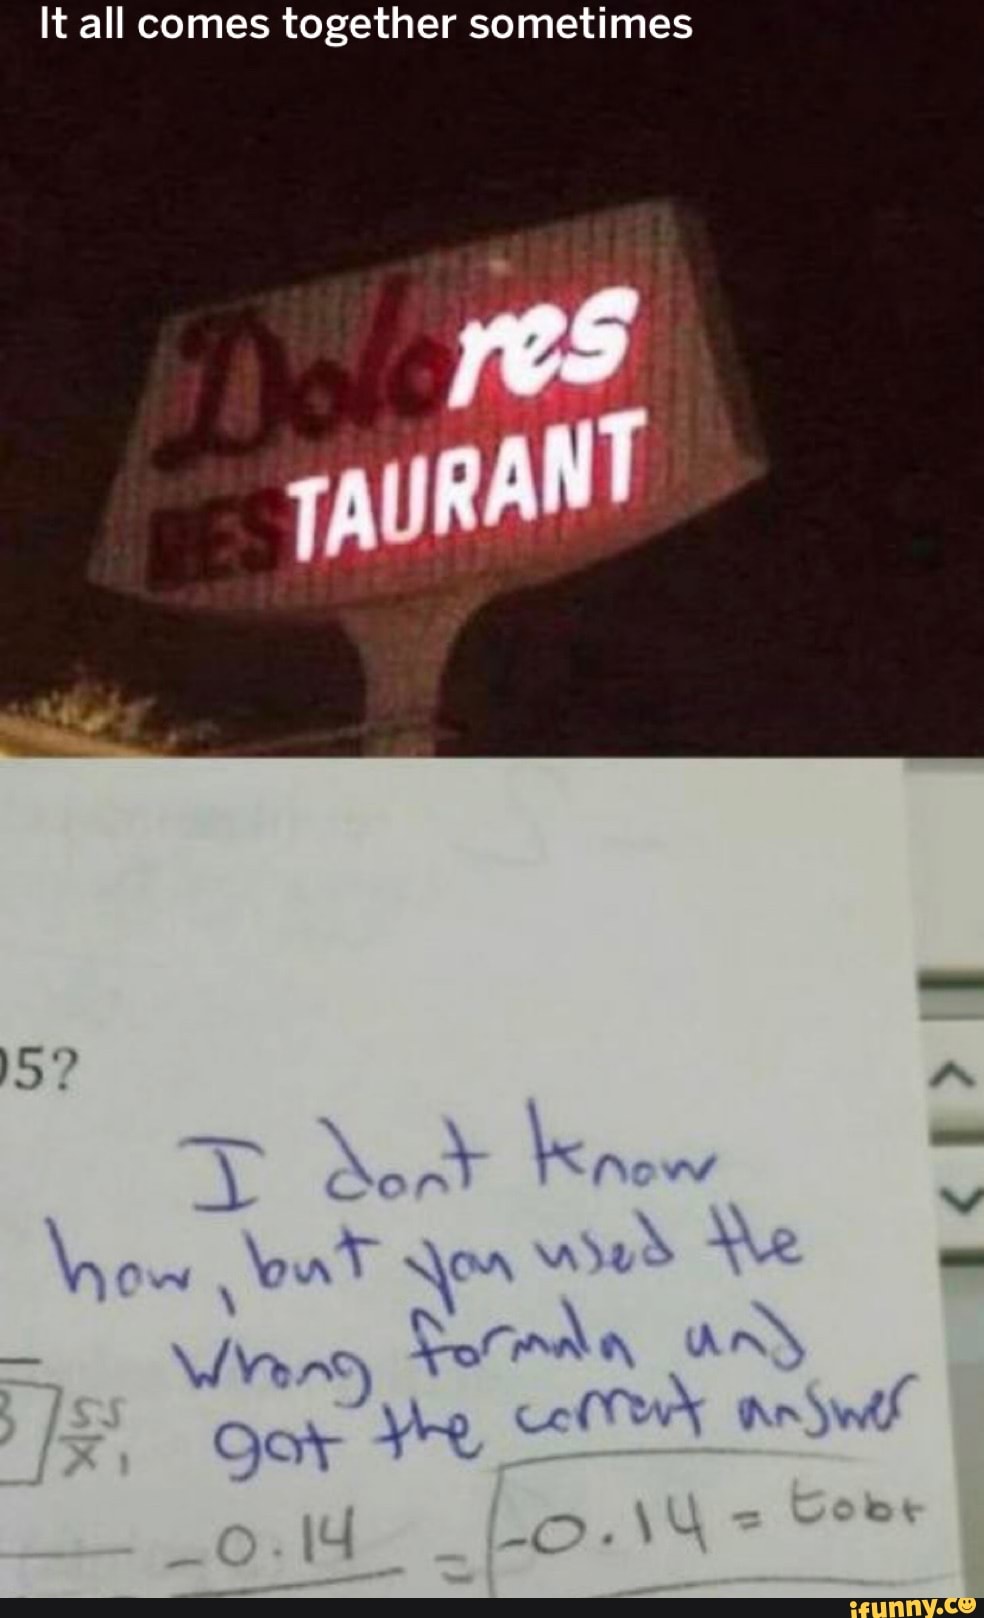 It all comes together sometimes
Dolores
RESTAURANT
05?
I dont know
how, but you used the
wrong formula and
got the correct answer
SS
X1
-0.14 = -0.14 = tobt
ifunny.co